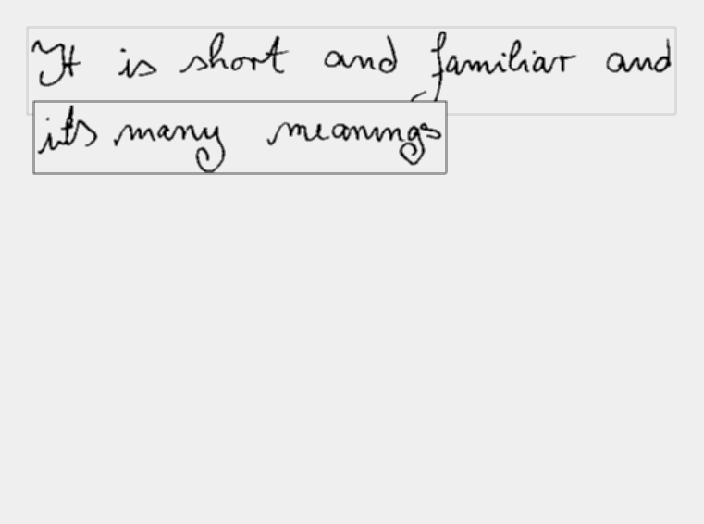 It is short and familiar and
its many meanings